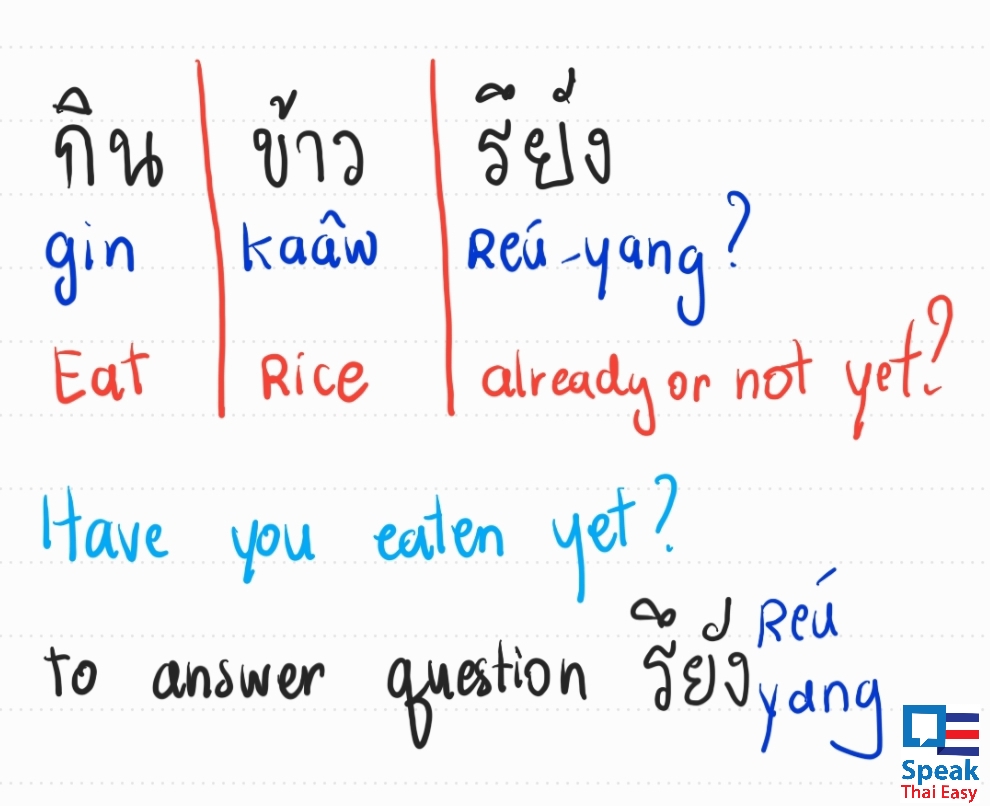 กิน ข้าว รึยัง
gin kaâw Reú-yang?
Eat Rice already or not yet?
Have you eaten yet?
to answer question รึยัง Reú yang
Speak
Thai Easy